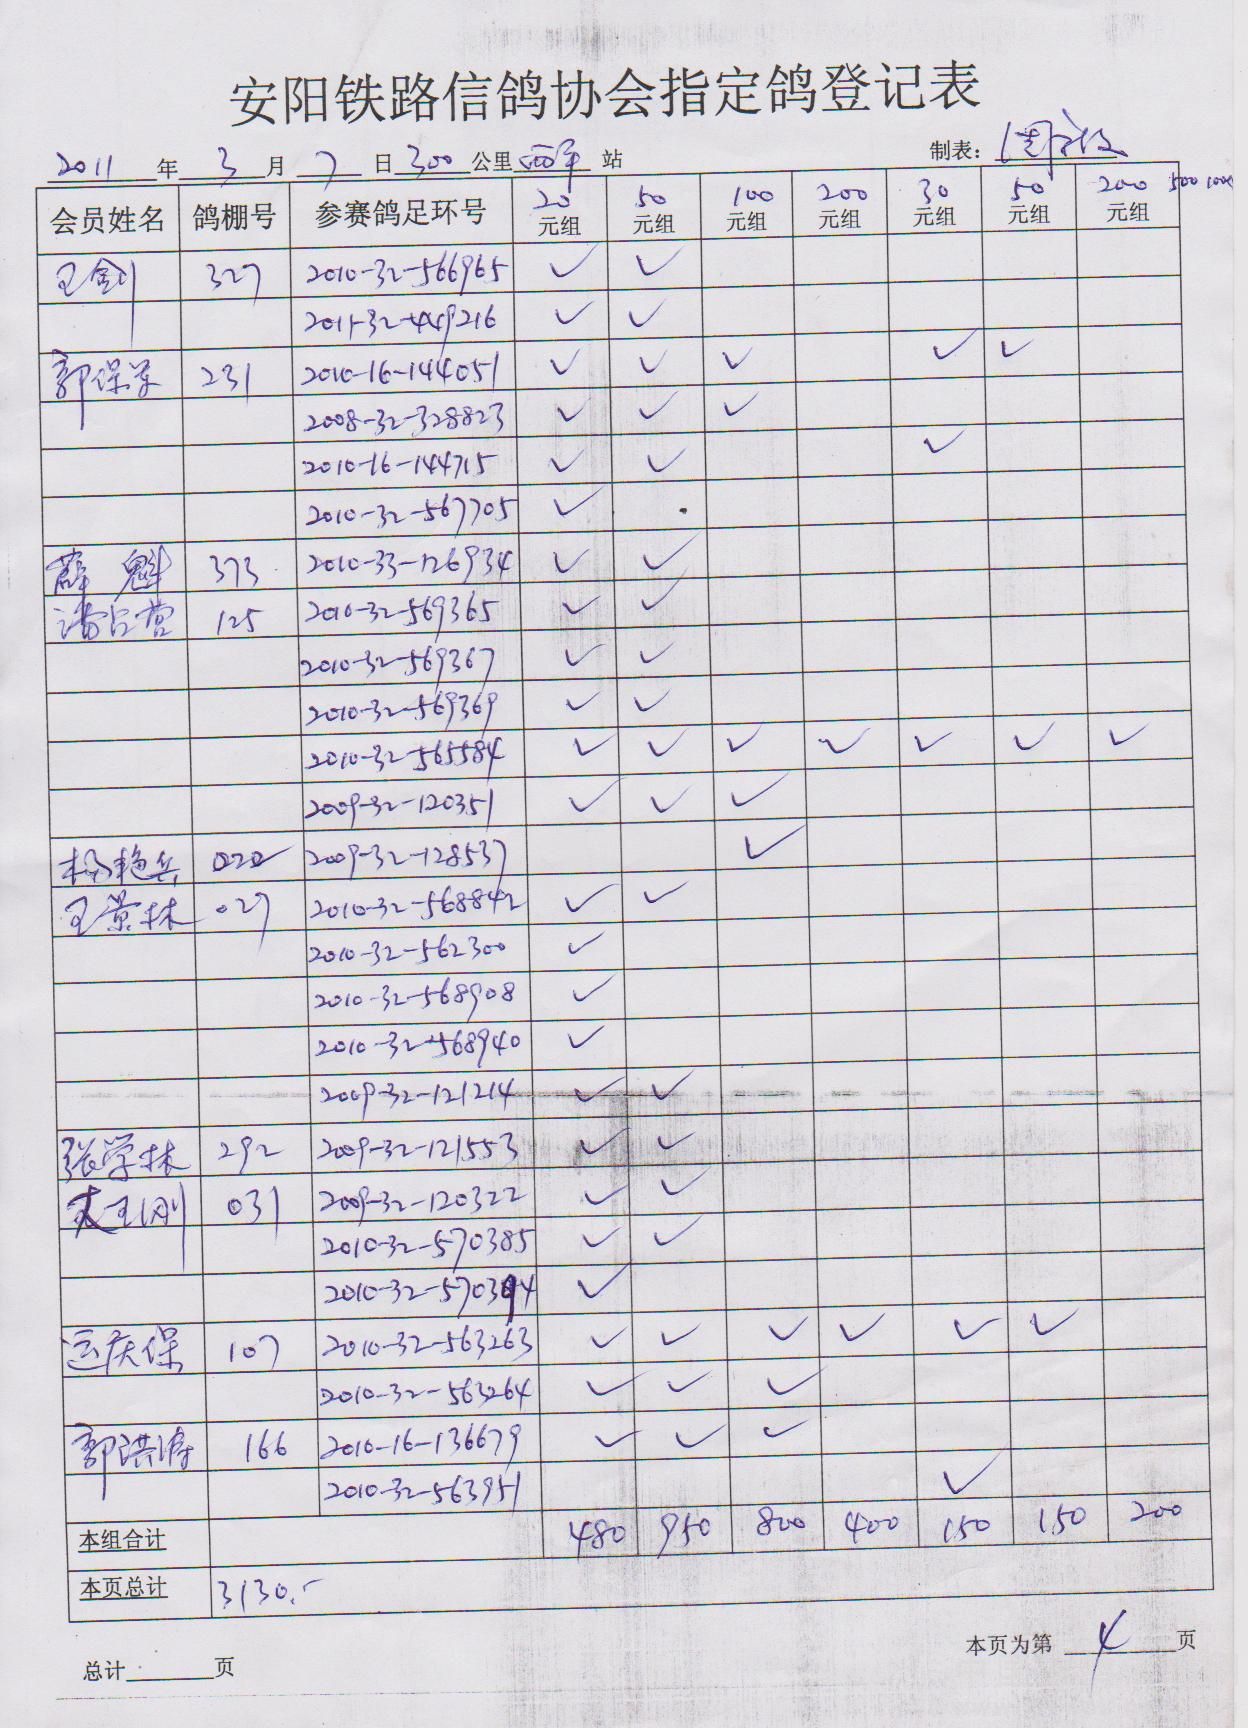 安阳铁路信鸽协会指定鸽登记表
2011 年 3 月 7 日 300 公里 西平 站 制表：
会员姓名 鸽棚号 参赛鸽足环号 20元组 50元组 100元组 200元组 30元组 50元组 200元组 500 1000
王剑 327 2010-32-566965 ✓ ✓
2011-32-449216 ✓ ✓
郭保 231 2010-16-144051 ✓ ✓ ✓ ✓ ✓
2008-32-328823 ✓ ✓ ✓
2010-16-144715 ✓ ✓ ✓
2010-32-567705 ✓
薛魁 373 2010-33-126934 ✓ ✓
125 2010-32-569365 ✓ ✓
2010-32-569367 ✓ ✓
2010-32-569369 ✓ ✓
2010-32-565584 ✓ ✓ ✓ ✓ ✓ ✓ ✓
2009-32-120351 ✓ ✓ ✓
杨艳兵 022 2009-32-128537 ✓
王景林 027 2010-32-568842 ✓ ✓
2010-32-562300 ✓
2010-32-568908 ✓
2010-32-568940 ✓
2009-32-121214 ✓ ✓
张学林 292 2009-32-121553 ✓ ✓
王刚 031 2009-32-120322 ✓ ✓
2010-32-570385 ✓ ✓
2010-32-570394 ✓
运庆保 107 2010-32-563263 ✓ ✓ ✓ ✓ ✓ ✓
2010-32-563264 ✓ ✓ ✓
郭洪涛 166 2010-16-136679 ✓ ✓ ✓
2010-32-563951 ✓
本组合计 480 950 800 400 150 150 200
本页总计 3130.-
本页为第 4 页
总计 页